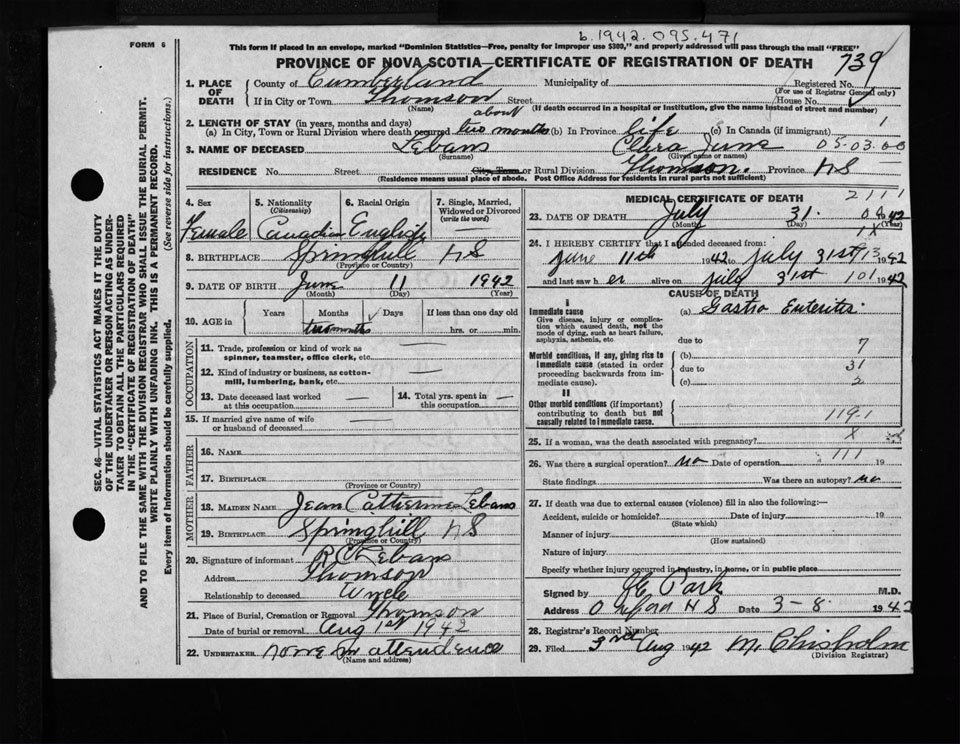 b. 1942.095.471
FORM 6
This form if placed in an envelope, marked "Dominion Statistics—Free, penalty for improper use $300," and properly addressed will pass through the mail "FREE"
PROVINCE OF NOVA SCOTIA—CERTIFICATE OF REGISTRATION OF DEATH 739
1. PLACE OF DEATH County of Cumberland Municipality of Registered No.
(For use of Registrar General only)
If in City or Town Thomson Street House No.
(Name) (If death occurred in a hospital or institution, give the name instead of street and number)
2. LENGTH OF STAY (in years, months and days) 1
(a) In City, Town or Rural Division where death occurred about two months (b) In Province life (c) In Canada (if immigrant)
3. NAME OF DECEASED Lebans Clara June 05.03.00
(Surname) (Given name or names)
RESIDENCE No. Street City, Town or Rural Division Thomson. Province NS
(Residence means usual place of abode. Post Office Address for residents in rural parts not sufficient)
4. Sex Female
5. Nationality (Citizenship) Canadian
6. Racial Origin English
7. Single, Married, Widowed or Divorced (write the word) —
8. BIRTHPLACE Springhill NS
(Province or Country)
9. DATE OF BIRTH June 11 1942
(Month) (Day) (Year)
10. AGE in Years Months Days If less than one day old
two months hrs. or min.
OCCUPATION
11. Trade, profession or kind of work as spinner, teamster, office clerk, etc. —
12. Kind of industry or business, as cotton-mill, lumbering, bank, etc. —
13. Date deceased last worked at this occupation —
14. Total yrs. spent in this occupation —
15. If married give name of wife or husband of deceased —
FATHER
16. NAME
17. BIRTHPLACE
(Province or Country)
MOTHER
18. MAIDEN NAME Jean Catherine Lebans
19. BIRTHPLACE Springhill NS
(Province or Country)
20. Signature of informant Lebans
Address Thomson
Relationship to deceased Uncle
21. Place of Burial, Cremation or Removal Thomson
Date of burial or removal Aug 1st 1942
22. UNDERTAKER none in attendence
(Name and address)
MEDICAL CERTIFICATE OF DEATH 2111
23. DATE OF DEATH July 31. 1942
(Month) (Day) (Year)
24. I HEREBY CERTIFY that I attended deceased from:
June 11th 1942 to July 31st 1942
and last saw her alive on July 31st 1942
CAUSE OF DEATH
I
Immediate cause
Give disease, injury or complication which caused death, not the mode of dying, such as heart failure, asphyxia, asthenia, etc
(a) Gastro Enteritis
due to 7
Morbid conditions, if any, giving rise to immediate cause (stated in order proceeding backwards from immediate cause).
(b)
due to 31
(c)
II
Other morbid conditions (if important) contributing to death but not causally related to immediate cause.
119-1
25. If a woman, was the death associated with pregnancy? x
26. Was there a surgical operation? no Date of operation 111 19
State findings Was there an autopsy? no
27. If death was due to external causes (violence) fill in also the following:—
Accident, suicide or homicide? Date of injury 19
(State which)
Manner of injury
(How sustained)
Nature of injury
Specify whether injury occurred in industry, in home, or in public place
Signed by Park M.D.
Address Oxford NS Date 3-8. 1942
28. Registrar's Record Number
29. Filed 3rd Aug 1942 M. Chisholm
(Division Registrar)
SEC. 46—VITAL STATISTICS ACT MAKES IT THE DUTY
OF THE UNDERTAKER OR PERSON ACTING AS UNDERTAKER TO OBTAIN ALL THE PARTICULARS REQUIRED
IN THE "CERTIFICATE OF REGISTRATION OF DEATH"
AND TO FILE THE SAME WITH THE DIVISION REGISTRAR WHO SHALL ISSUE THE BURIAL PERMIT.
WRITE PLAINLY WITH UNFADING INK. THIS IS A PERMANENT RECORD.
Every item of information should be carefully supplied. (See reverse side for instructions.)